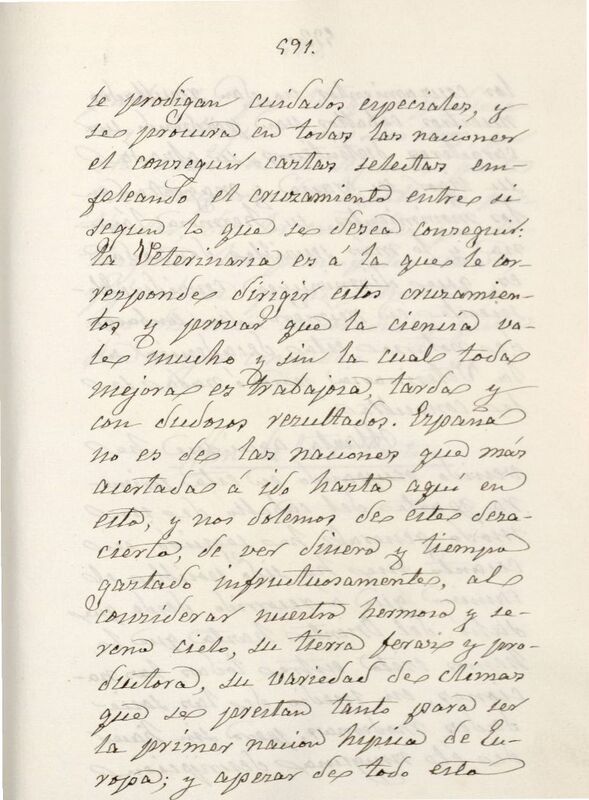 591.
le prodigan cuidados especiales, y
se procura en todas las naciones
el conseguir castas selectas em-
pleando el cruzamiento entre sí
segun lo que se desea conseguir:
la Veterinaria es á la que le cor-
responde dirigir estos cruzamien-
tos y provar que la ciencia va-
le mucho y sin la cual toda
mejora es trabajosa, tarda y
con dudosos resultados. España
no es de las naciones que más
acertada á ido hasta aquí en
esto, y nos dolemos de este desa-
cierto, de ver dinero y tiempo
gastado infructuosamente, al
considerar nuestro hermoso y se-
reno cielo, su tierra feraz y pro-
ductora, su variedad de climas
que se prestan tanto para ser
la primer nacion hípica de Eu-
ropa; y apezar de todo esto